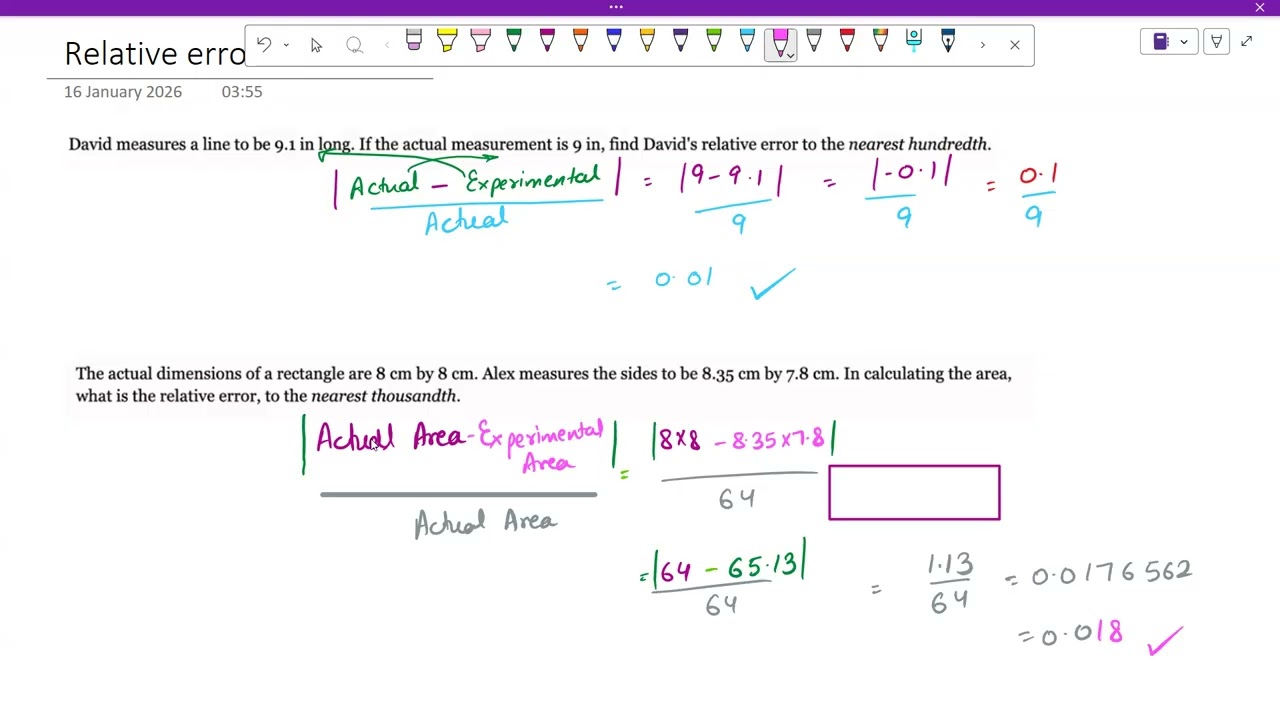 Relative erro
16 January 2026 03:55
David measures a line to be 9.1 in long. If the actual measurement is 9 in, find David's relative error to the nearest hundredth.
|Actual - Experimental| / Actual = |9 - 9.1| / 9 = |-0.1| / 9 = 0.1 / 9
= 0.01 ✓
The actual dimensions of a rectangle are 8 cm by 8 cm. Alex measures the sides to be 8.35 cm by 7.8 cm. In calculating the area,
what is the relative error, to the nearest thousandth.
|Actual Area - Experimental Area| / Actual Area = |8×8 - 8.35×7.8| / 64
= |64 - 65.13| / 64 = 1.13 / 64 = 0.0176562
= 0.018 ✓